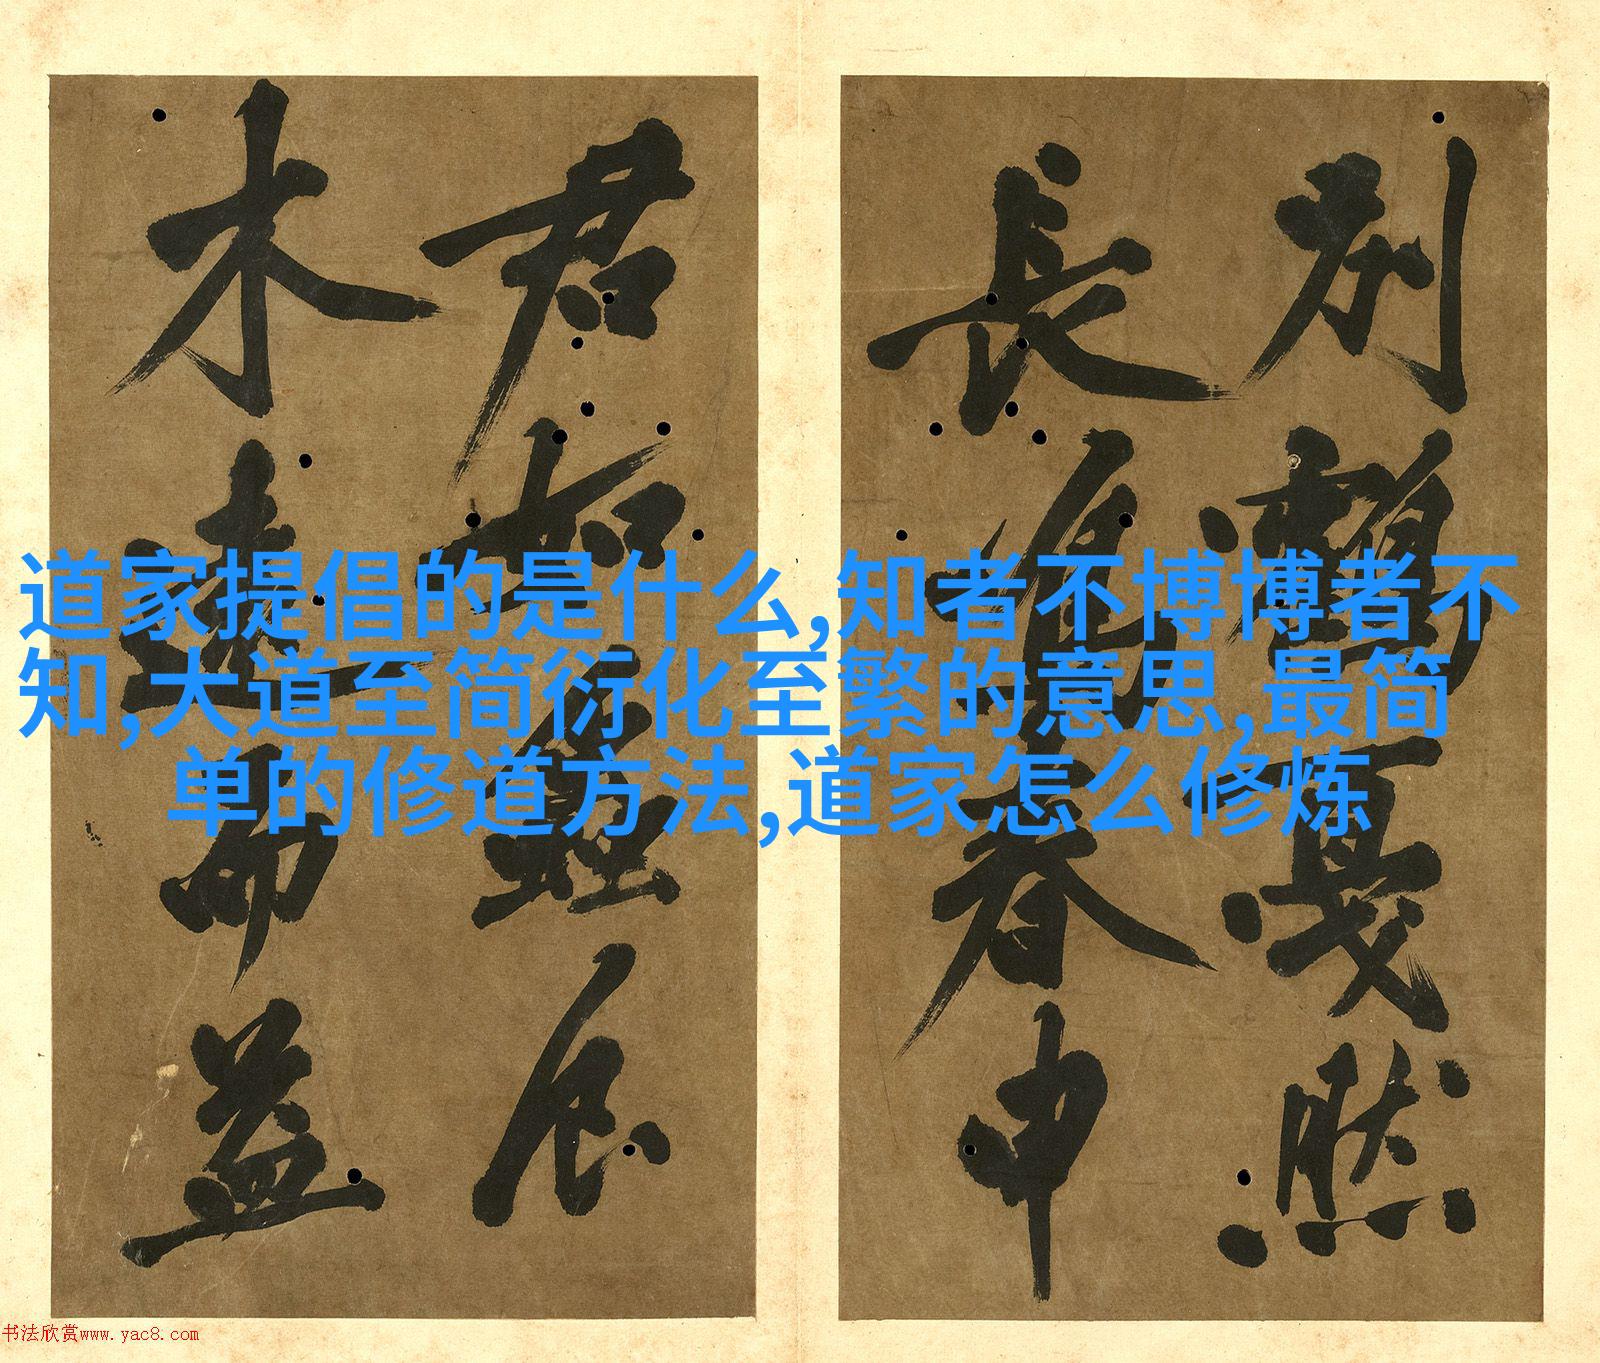 別鶴戛然
長眉春申
君如無居
木遠而益
道家提倡的是什么,知者不博博者不
知,大道至简衍化至繁的意思,最简
单的修道方法,道家怎么修炼
书法欣赏www.yac8.com